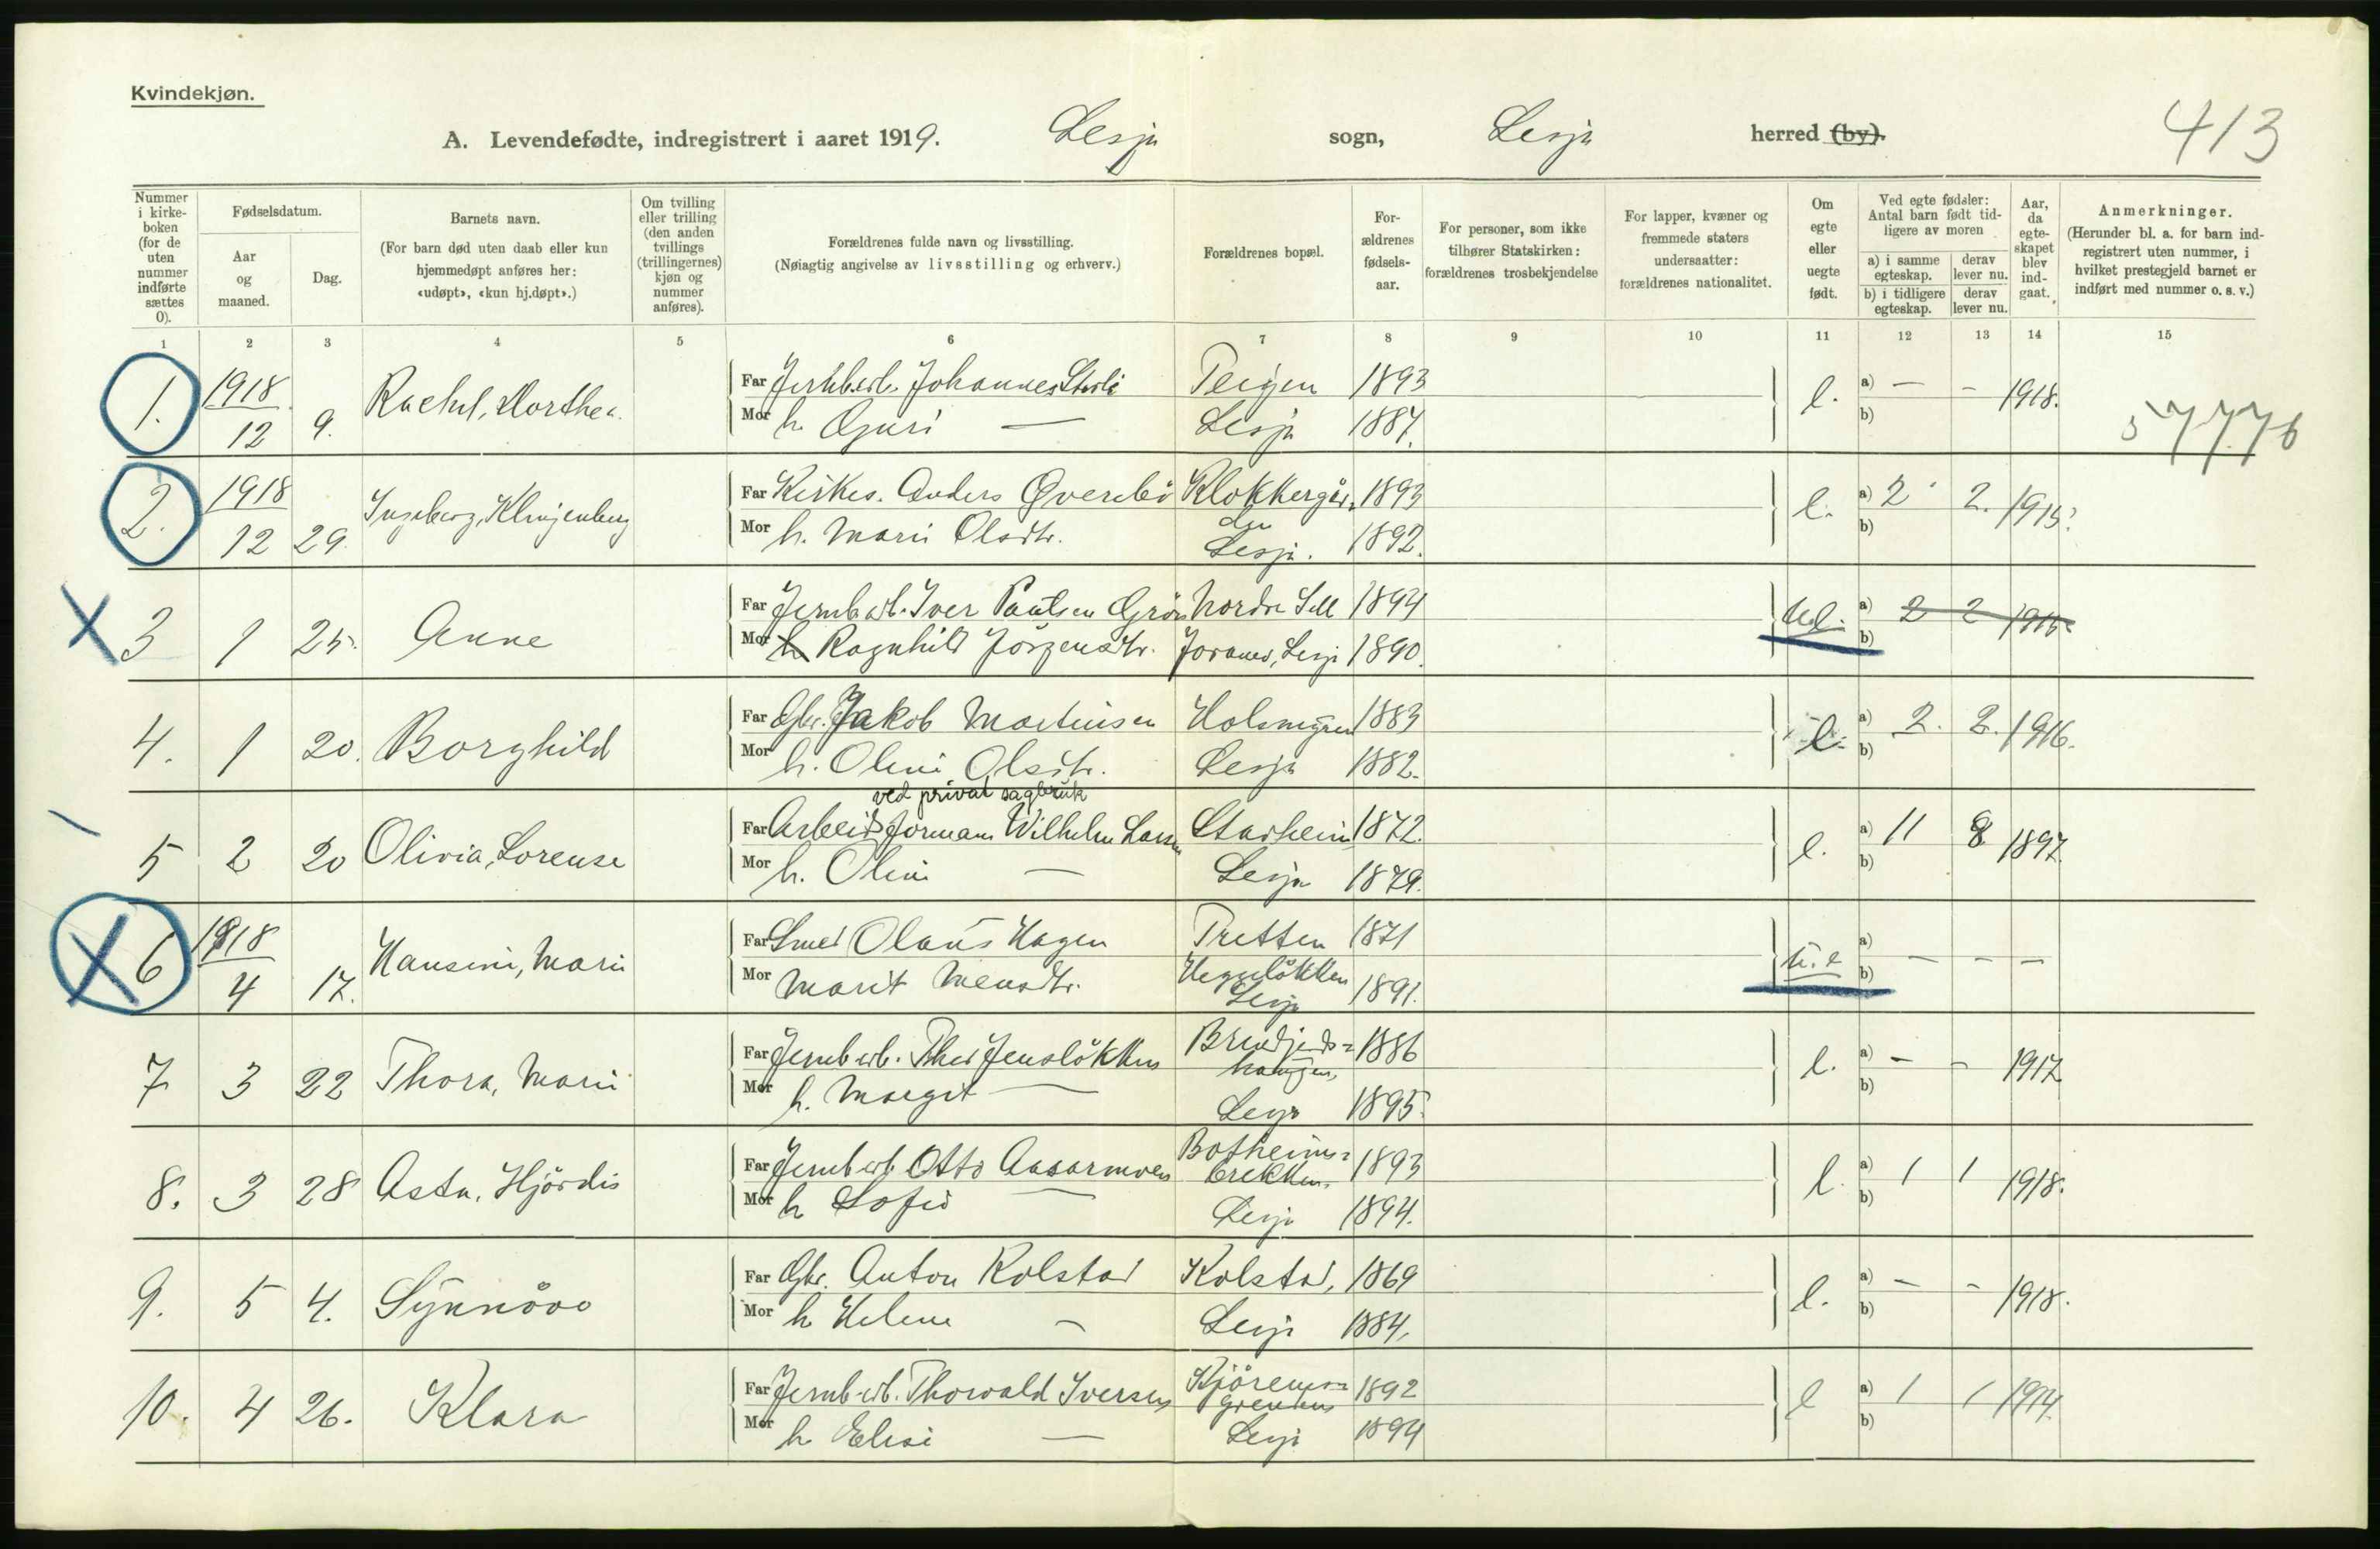 Kvindekjøn.
A. Levendefødte, indregistrert i aaret 1919. Lesja sogn, Lesja herred (by). 413
Nummer i kirke-boken (for de uten nummer indførte sættes 0).
Fødselsdatum.
Aar og maaned.
Dag.
Barnets navn.
(For barn død uten daab eller kun hjemmedøpt anføres her: «udøpt», «kun hj.døpt».)
Om tvilling eller trilling (den anden tvillings (trillingernes) kjøn og nummer anføres).
Forældrenes fulde navn og livsstilling.
(Nøiagtig angivelse av livsstilling og erhverv.)
Forældrenes bopæl.
For-ældrenes fødsels-aar.
For personer, som ikke tilhører Statskirken: forældrenes trosbekjendelse
For lapper, kvæner og fremmede staters undersaatter: forældrenes nationalitet.
Om egte eller uegte født.
Ved egte fødsler: Antal barn født tid-ligere av moren
a) i samme egteskap. derav lever nu.
b) i tidligere egteskap. derav lever nu.
Aar, da egte-skapet blev ind-gaat.
Anmerkninger.
(Herunder bl. a. for barn ind-registrert uten nummer, i hvilket prestegjeld barnet er indført med nummer o. s. v.)
1 2 3 4 5 6 7 8 9 10 11 12 13 14 15
1. 1918 12 9. Rachel, Dorthea. Far Jernb.arb. Johannes Teigen 1893 e. a) — - 1918.
Mor h. Guri — Lesja 1887. b) 57776
2. 1918 12 29. Ingeborg, Klingenberg Far Kirkes. Anders Øverebö Klokkergår- 1893 e. a) 2 2. 1915.
Mor h. Mari Olsdtr. den Lesja. 1892. b)
3 1 25. Anne Far Jernb.arb. Iver Paulsen Grön Nordre Sell 1894 u.e. a) 2 2 1915
Mor h. Ragnhild Jörgensdtr. Joramo, Lesja 1890. b)
4. 1 20. Borghild Far Gbr. Jakob Martinsen Holsmyren 1883 e. a) 2. 2. 1916.
Mor h. Oline Olsdtr. Lesja 1882. b)
ved privat sagbruk
5 2 20 Olivia, Lorense Far Arbeidsformann Wilhelm Larsen Starheim 1872. e. a) 11 8 1897
Mor h. Oline — Lesja 1879. b)
6 1918 4 17. Hansine, Marie Far Smed Olaus Hagen Tretten 1871 u.e a)
Mor Marit Mensdtr. Heggelökken Lesja 1891. b) — — —
7 3 22 Thora, Marie Far Jernb.arb. Thor Jenslökken 1886 e. a) — - 1917
Mor h. Margit — haugen, Lesja 1895. b)
8. 3 28 Asta, Hjördis Far Jernb.arb. Otto Aasarmoen Botheims- brekken, 1893 e. a) 1 1 1918.
Mor h Sofie — Lesja 1894. b)
9. 5 4. Synnöve Far Gbr. Anton Kolstad Kolstad, 1869 e. a) — - 1918.
Mor h Helene — Lesja 1884. b)
10. 4 26. Klara Far Jernb.arb. Thorvald Iversen Kjörems- grenden 1892 e a) 1 1 1914.
Mor h Elise — Lesja 1894 b)